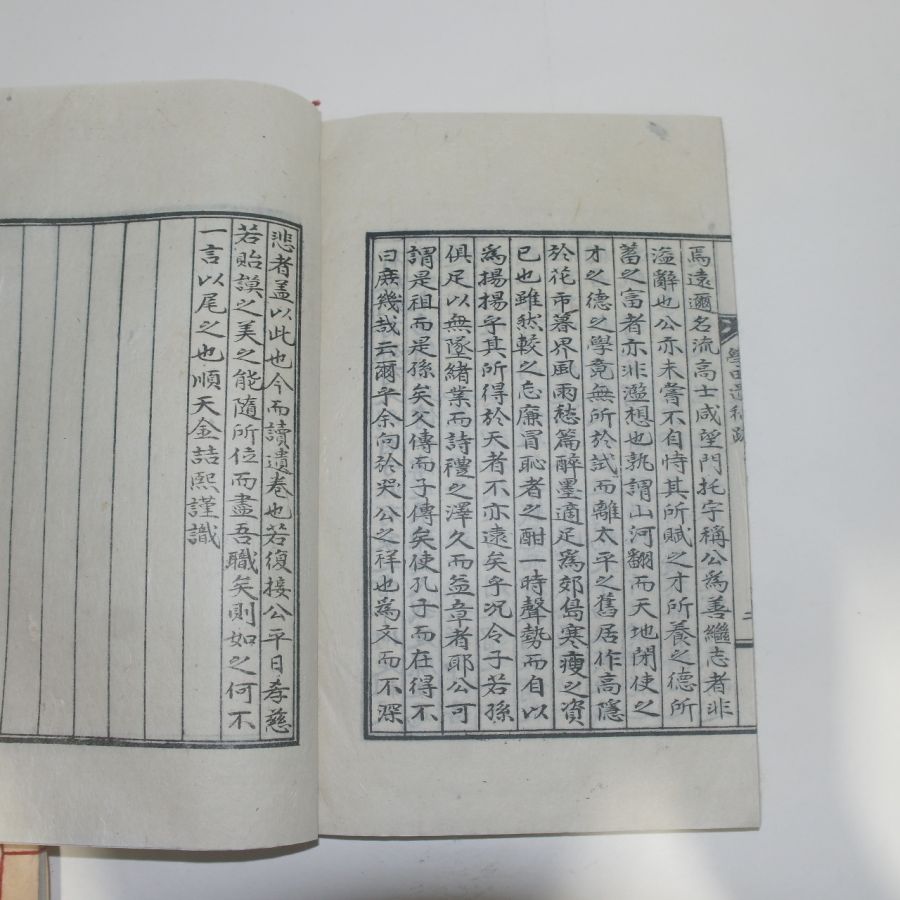 焉遠邇名流高士咸望門托字稱公爲善繼志者非
溢辭也公亦未嘗不自恃其所賦之才所養之德所
蓄之富者亦非濫想也孰謂山河翻而天地閉使之
才之德之學竟無所於試而離太平之舊居作高隱
於花市暮界風雨愁篇醉墨適足爲郊島寒瘦之資
已也雖然較之忘廉冒恥者之酣一時聲勢而自以
爲揚揚乎其所得於天者不亦遠矣乎况令子若孫
俱足以無墜緖業而詩禮之澤久而益章者耶公可
謂是祖而是孫矣父傳而子傳矣使孔子而在得不
曰庶幾哉云爾乎余向於哭公之祥也爲文而不深
悲者盖以此也今而讀遺卷也若復接公平日孝慈
若貽謨之美之能隨所位而盡吾職矣則如之何不
一言以尾之也順天金喆熙謹識
遺稿跋
二